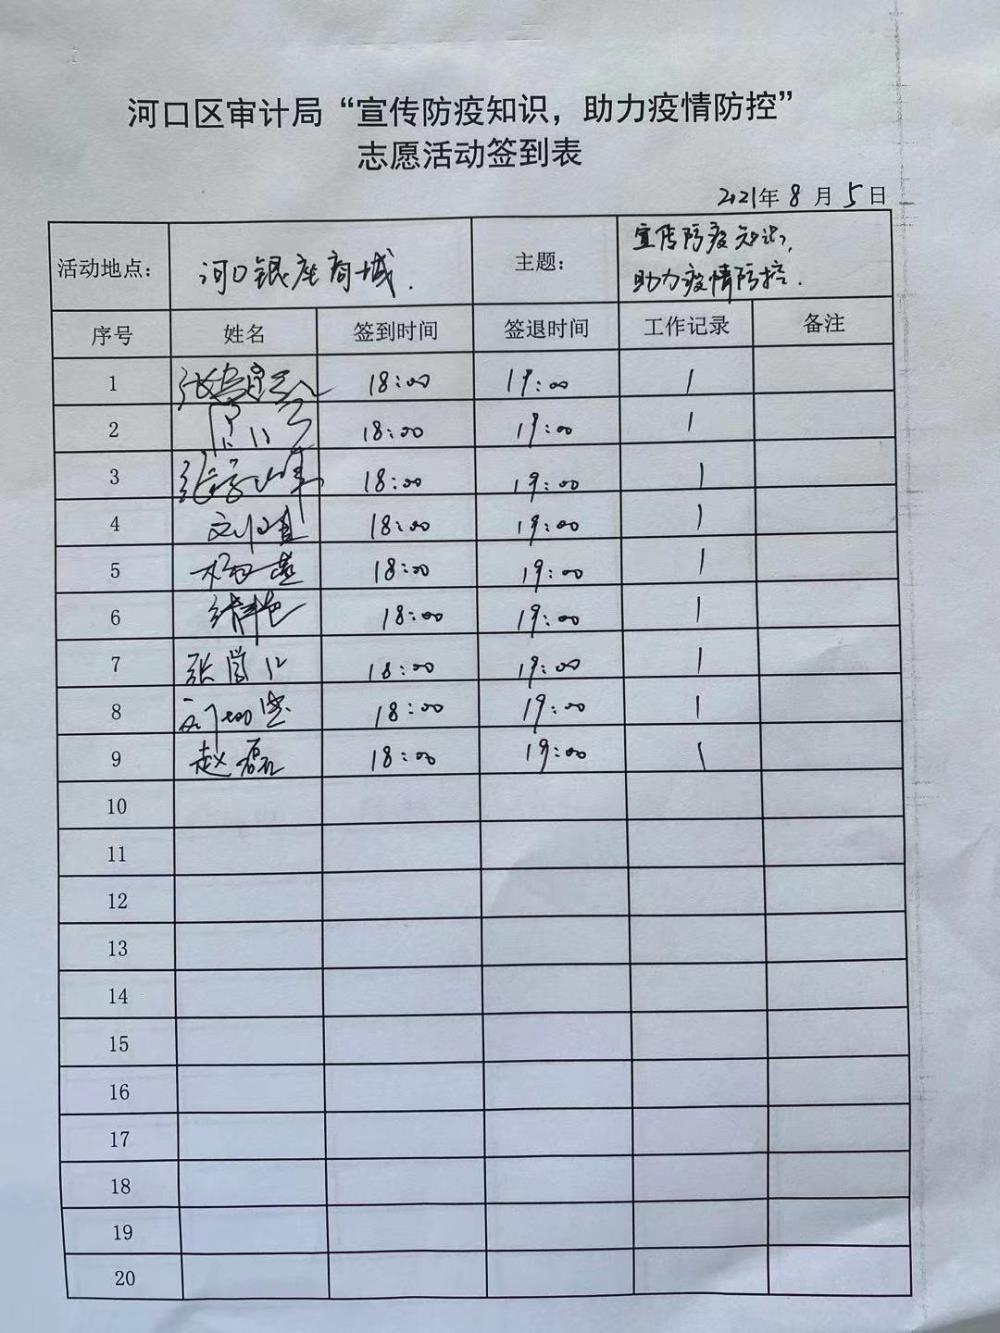 河口区审计局“宣传防疫知识，助力疫情防控”
志愿活动签到表
2021年 8 月 5 日
活动地点： 河口银座商城. 主题： 宣传防疫知识,
助力疫情防控.
序号 姓名 签到时间 签退时间 工作记录 备注
1 18:00 19:00 1
2 18:00 19:00 1
3 18:00 19:00 1
4 18:00 19:00 1
5 18:00 19:00 1
6 18:00 19:00 1
7 18:00 19:00 1
8 18:00 19:00 1
9 赵磊 18:00 19:00 1
10
11
12
13
14
15
16
17
18
19
20